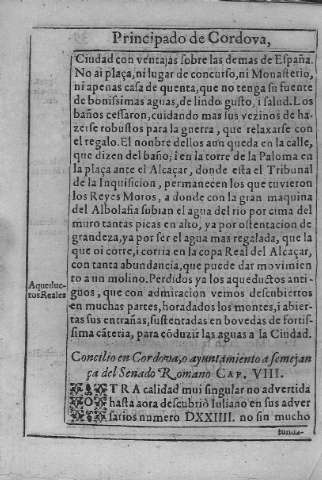 Principado de Cordova,
Ciudad con ventajas sobre las demas de España.
No ai plaça, ni lugar de concurso, ni Monasterio,
ni apenas casa de quenta, que no tenga su fuente
de bonissimas aguas, de lindo gusto, i salud. Los
baños cessaron, cuidando mas sus vezinos de ha-
zerse robustos para la guerra, que relaxarse con
el regalo. El nonbre dellos aun queda en la calle,
que dizen del baño; i en la corre de la Paloma en
la plaça ante el Alcaçar, donde esta el Tribunal
de la Inquisicion, permanecen los que tuvieron
los Reyes Moros, a donde con la gran maquina
del Albolafia subian el agua del rio por cima del
muro tantas picas en alto, ya por ostentacion de
grandeza, ya por ser el agua mas regalada, que la
que oi corre, i corria en la copa Real del Alcaçar,
con tanta abundancia, que puede dar movimien
to a un molino. Perdidos ya los aqueductos anti-
Aqueduc-
tos Reales
guos, que con admiracion vemos descubiertos
en muchas partes, horadados los montes, i abier-
tas sus entrañas, sustentadas en bovedas de fortis-
sima cãteria, para cõduzir las aguas a la Ciudad.
Concilio en Cordova, o ayuntamiento a semejan
ça del Senado Romano CAP. VIII.
OTRA calidad mui singular no advertida
hasta aora descubriò Iuliano en sus adver
sarios numero DXXIIII. no sin mucho